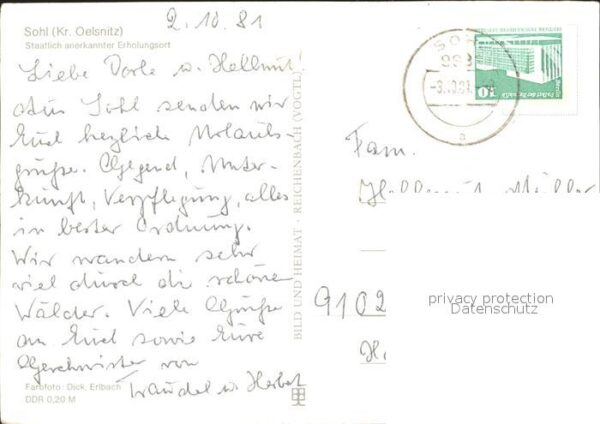 2.10.81
Sohl (Kr. Oelsnitz)
Staatlich anerkannter Erholungsort
Liebe Dorle u. Hellmut!
Aus Sohl senden wir
Euch herzliche Urlaubs-
grüße. Gegend, Unter-
kunft, Verpflegung, alles
in bester Ordnung.
Wir wandern sehr
viel durch die schönen
Wälder. Viele Grüße
an Euch sowie Eure
Geschwister von
Traudel u. Herbert
Farbfoto: Dick, Erlbach
DDR 0,20 M
BILD UND HEIMAT · REICHENBACH (VOGTL)
SOHL
10
Fam.
Hellmut Müller
9102
privacy protection
Datenschutz